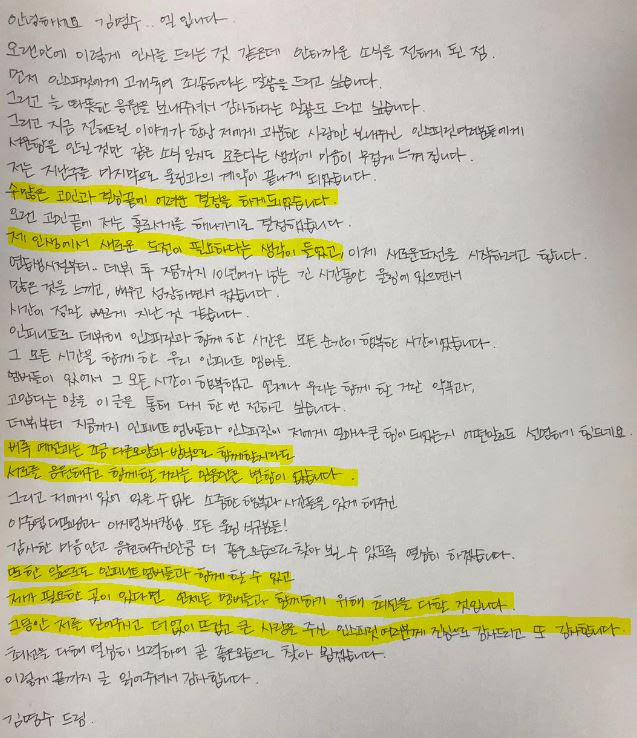 안녕하세요 김명수.. 엘 입니다.
오랜만에 이렇게 인사를 드리는 것 같은데 안타까운 소식을 전하게 된 점.
먼저 인스피릿에게 고개숙여 죄송하다는 말씀을 드리고 싶습니다.
그리고 늘 따뜻한 응원을 보내주셔서 감사하다는 말씀도 드리고 싶습니다.
그리고 지금 전해드릴 이야기가 항상 저에게 과분한 사랑만 보내주신 인스피릿여러분들에게
서운함을 안길 것만 같은 소식 일지도 모른다는 생각에 마음이 무겁게 느껴집니다.
저는 지난주를 마지막으로 울림과의 계약이 끝나게 되었습니다.
수많은 고민과 결심끝에 어려운 결정을 하게되었습니다
오랜 고민끝에 저는 홀로서기를 해나가기로 결정했습니다.
제 인생에서 새로운 도전이 필요하다는 생각이 들었고, 이제 새로운도전을 시작하려고 합니다.
연습생시절부터.. 데뷔 후 지금까지 10년여가 넘는 긴 시간동안 울림에 있으면서
많은 것을 느끼고, 배우고 성장하면서 컸습니다.
시간이 정말 빠르게 지난 것 같습니다.
인피니트로 데뷔해 인스피릿과 함께 한 시간은 모든 순간이 행복한 시간이었습니다.
그 모든 시간을 함께 한 우리 인피니트 멤버들.
멤버들이 있어서 그 모든 시간이 행복했고 언제나 우리는 함께 할 거란 약속과,
고맙다는 말을 이 글을 통해 다시 한 번 전하고 싶습니다.
데뷔부터 지금까지 인피니트멤버들과 인스피릿이 저에게 얼마나 큰 힘이 되었는지 어떤말로도 설명하기 힘드네요.
비록 예전과는 조금 다른모양과 방식으로 함께할지라도
서로를 응원해주고 함께할거라는 믿음만은 변함이 없습니다.
그리고 저에게 있어 잊을 수 없는 소중한 행복과 시간들을 있게 해주신
이중엽대표님과 이지영부사장님 모든 울림 식구분들!
감사한 마음안고 응원해주신만큼 더 좋은모습으로 찾아 뵐 수 있도록 열심히 하겠습니다.
또한 앞으로도 인피니트멤버들과 함께 할 수 있고
제가 필요한 곳이 있다면 언제든 멤버들과 함께하기 위해 최선을 다할 것입니다
그동안 저를 믿어주시고 더없이 뜨겁고 큰 사랑을 주신 인스피릿여러분께 진심으로 감사드리고 또 감사합니다.
최선을 다해 열심히 노력하여 곧 좋은모습으로 찾아 뵙겠습니다.
이렇게 끝까지 글 읽어주셔서 감사합니다.
김명수 드림.